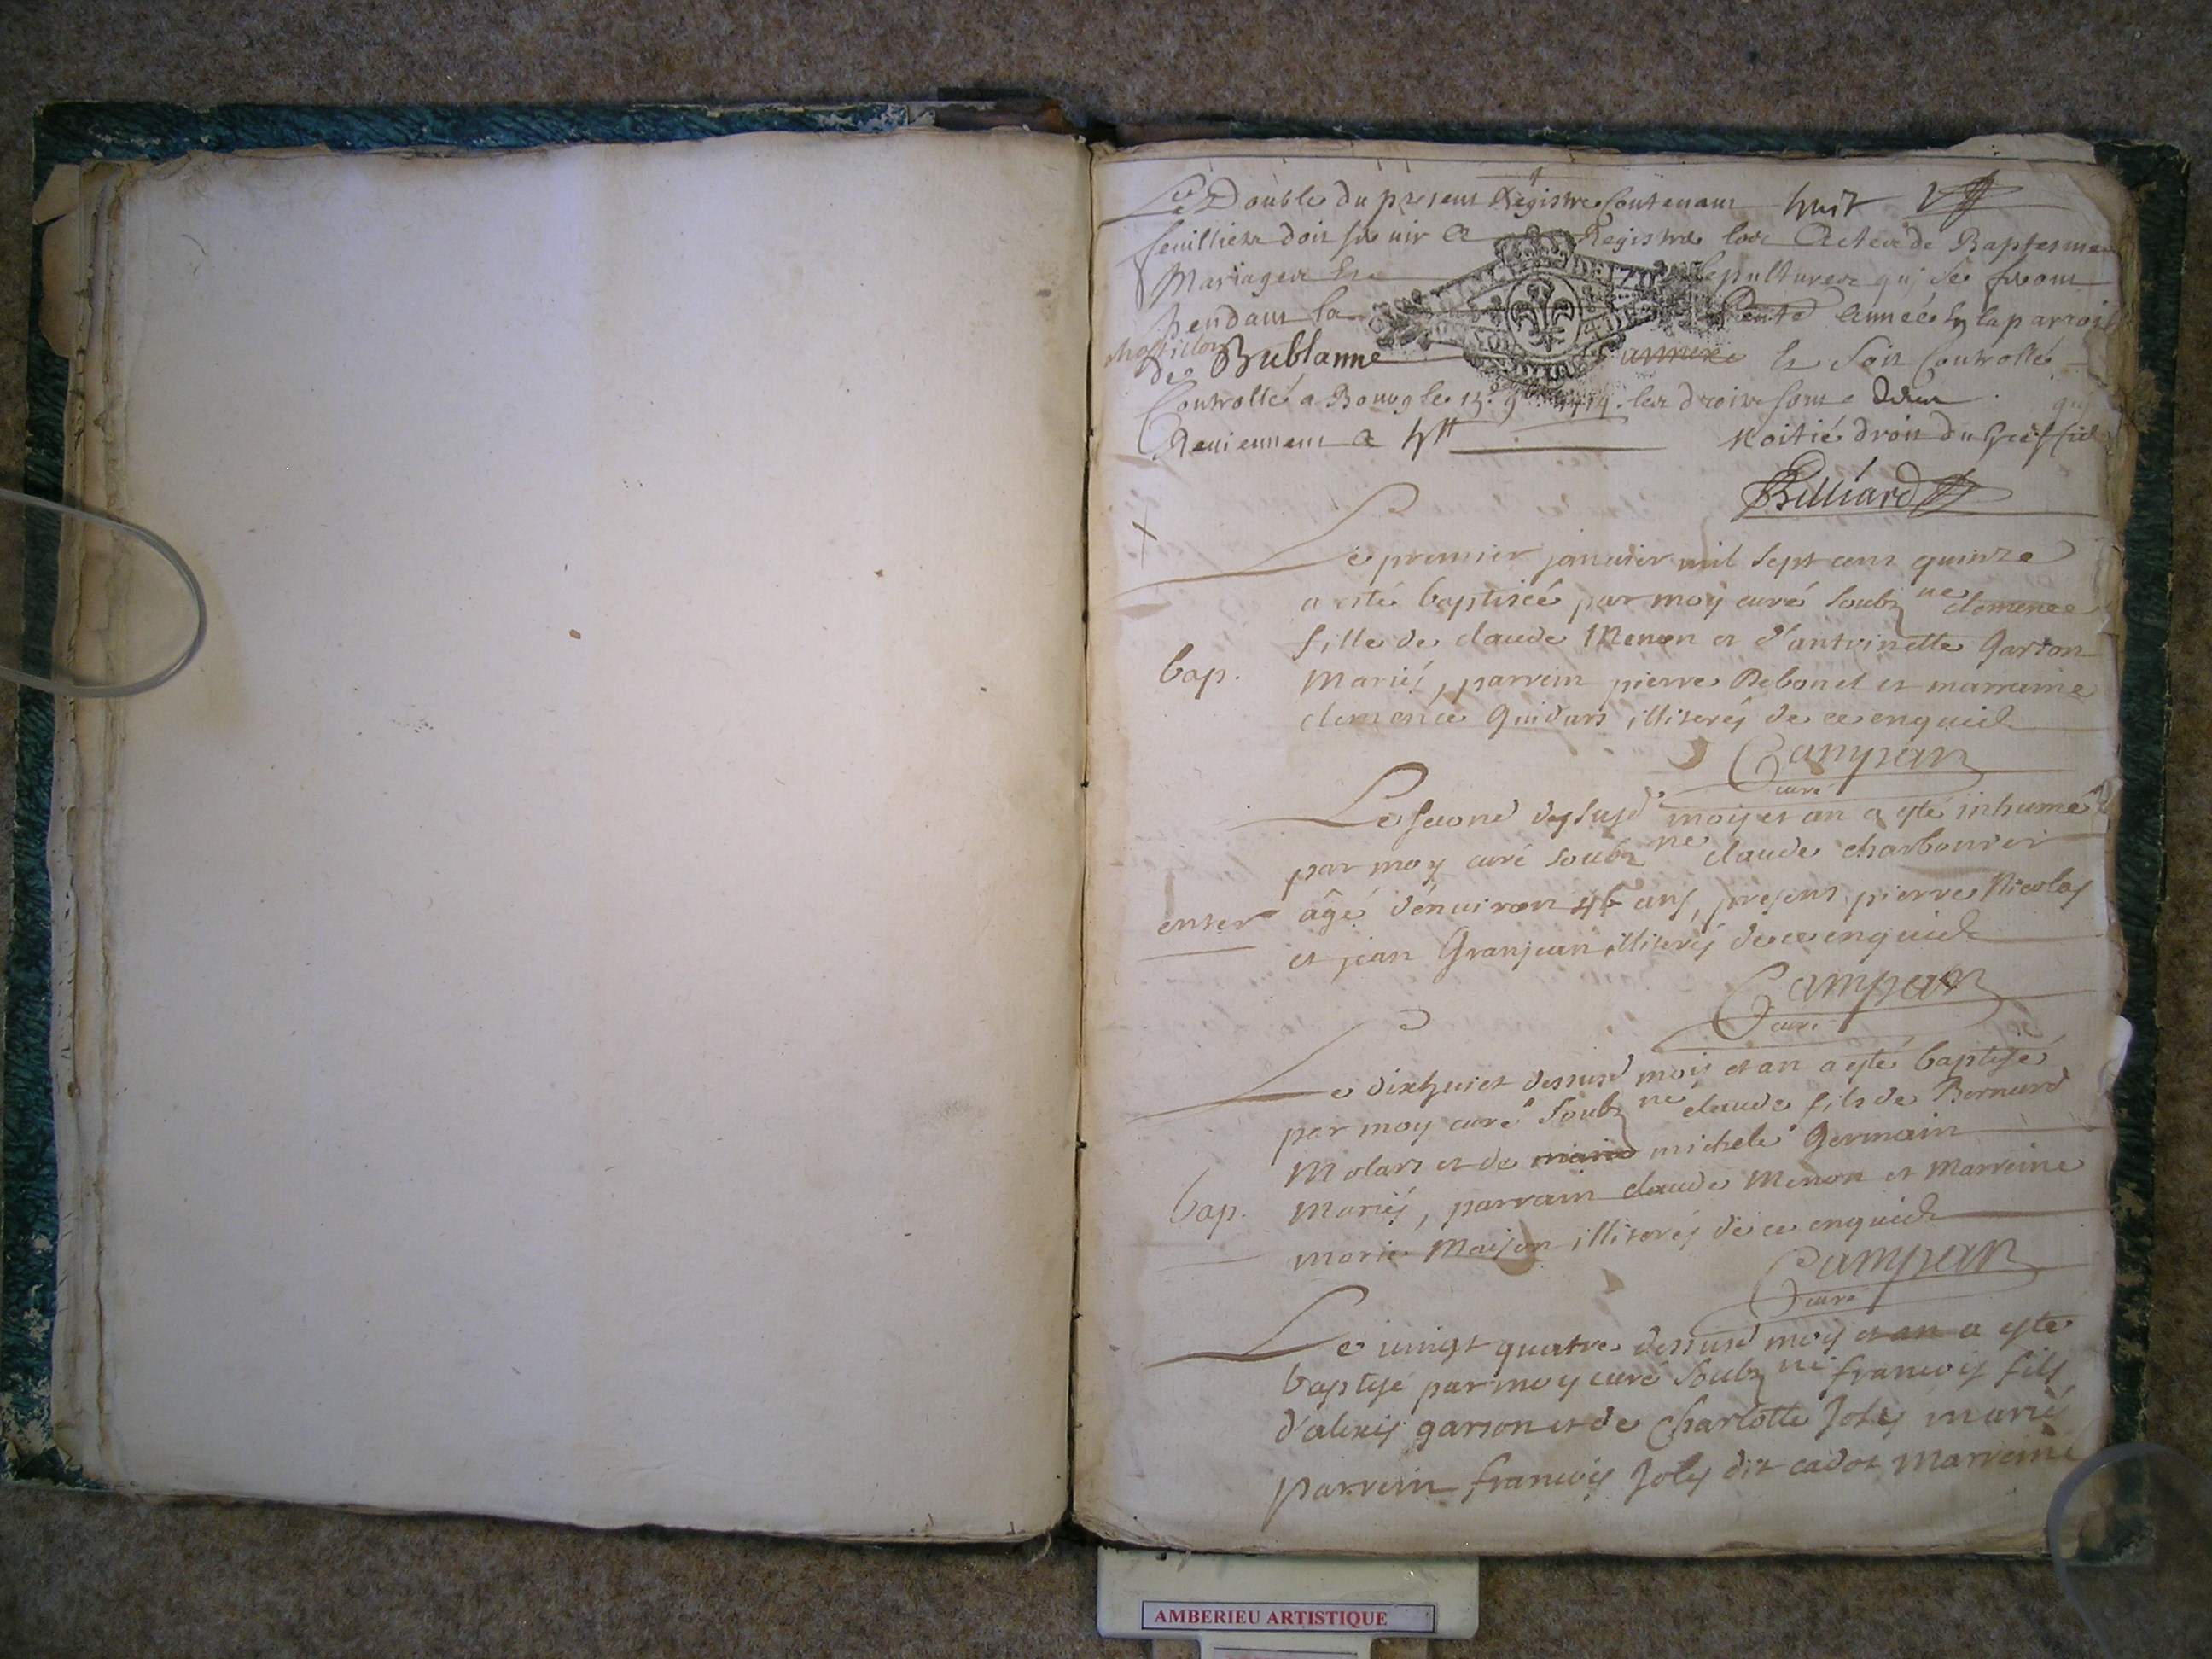 Le Double du present Registre Contenant huit
feuilliers doit servir a Registrer les Actes de Baptesmes
Mariages et Sepultures qui se feront
pendant la Pnte année En la parroisse
chastillon
de Bublanne et annexe Et Soit Controllé
Controllé a Bourg le 13. 9bre 1714. les droits sont
Reviennent a Moitié droit du Greffier
Billiard
Le premier januier mil sept cens quinze
a esté baptisée par moy curé soubzne clemence
fille de claude Menon et d'antoinette Garson
bap.
mariés, parrein pierre Rebonet et marraine
clemence Guidars illiterés de ce enquis
Campan
curé
Le second dessusd mois et an a esté inhumé
par moy curé soubzne claude charbonier
enter
âgé d'enuiron 46 ans, presens pierre Nicolas
et jean Granjean illiterés de ce enquis
Campan
curé
Le dixhuict dessusd mois et an a esté baptisé
par moy curé soubzne claude fils de Bernard
Molars et de marie michele Germain
bap.
mariés, parrain claude Menon et Marreine
marie Maison illiterés de ce enquis
Campan
curé
Le uingt quatre dessusd mois et an a esté
baptisé par moy curé soubzne francois fils
d'alexis garson et de Charlotte Joly marié
parrein francois Joly dit cadot Marreine
AMBERIEU ARTISTIQUE